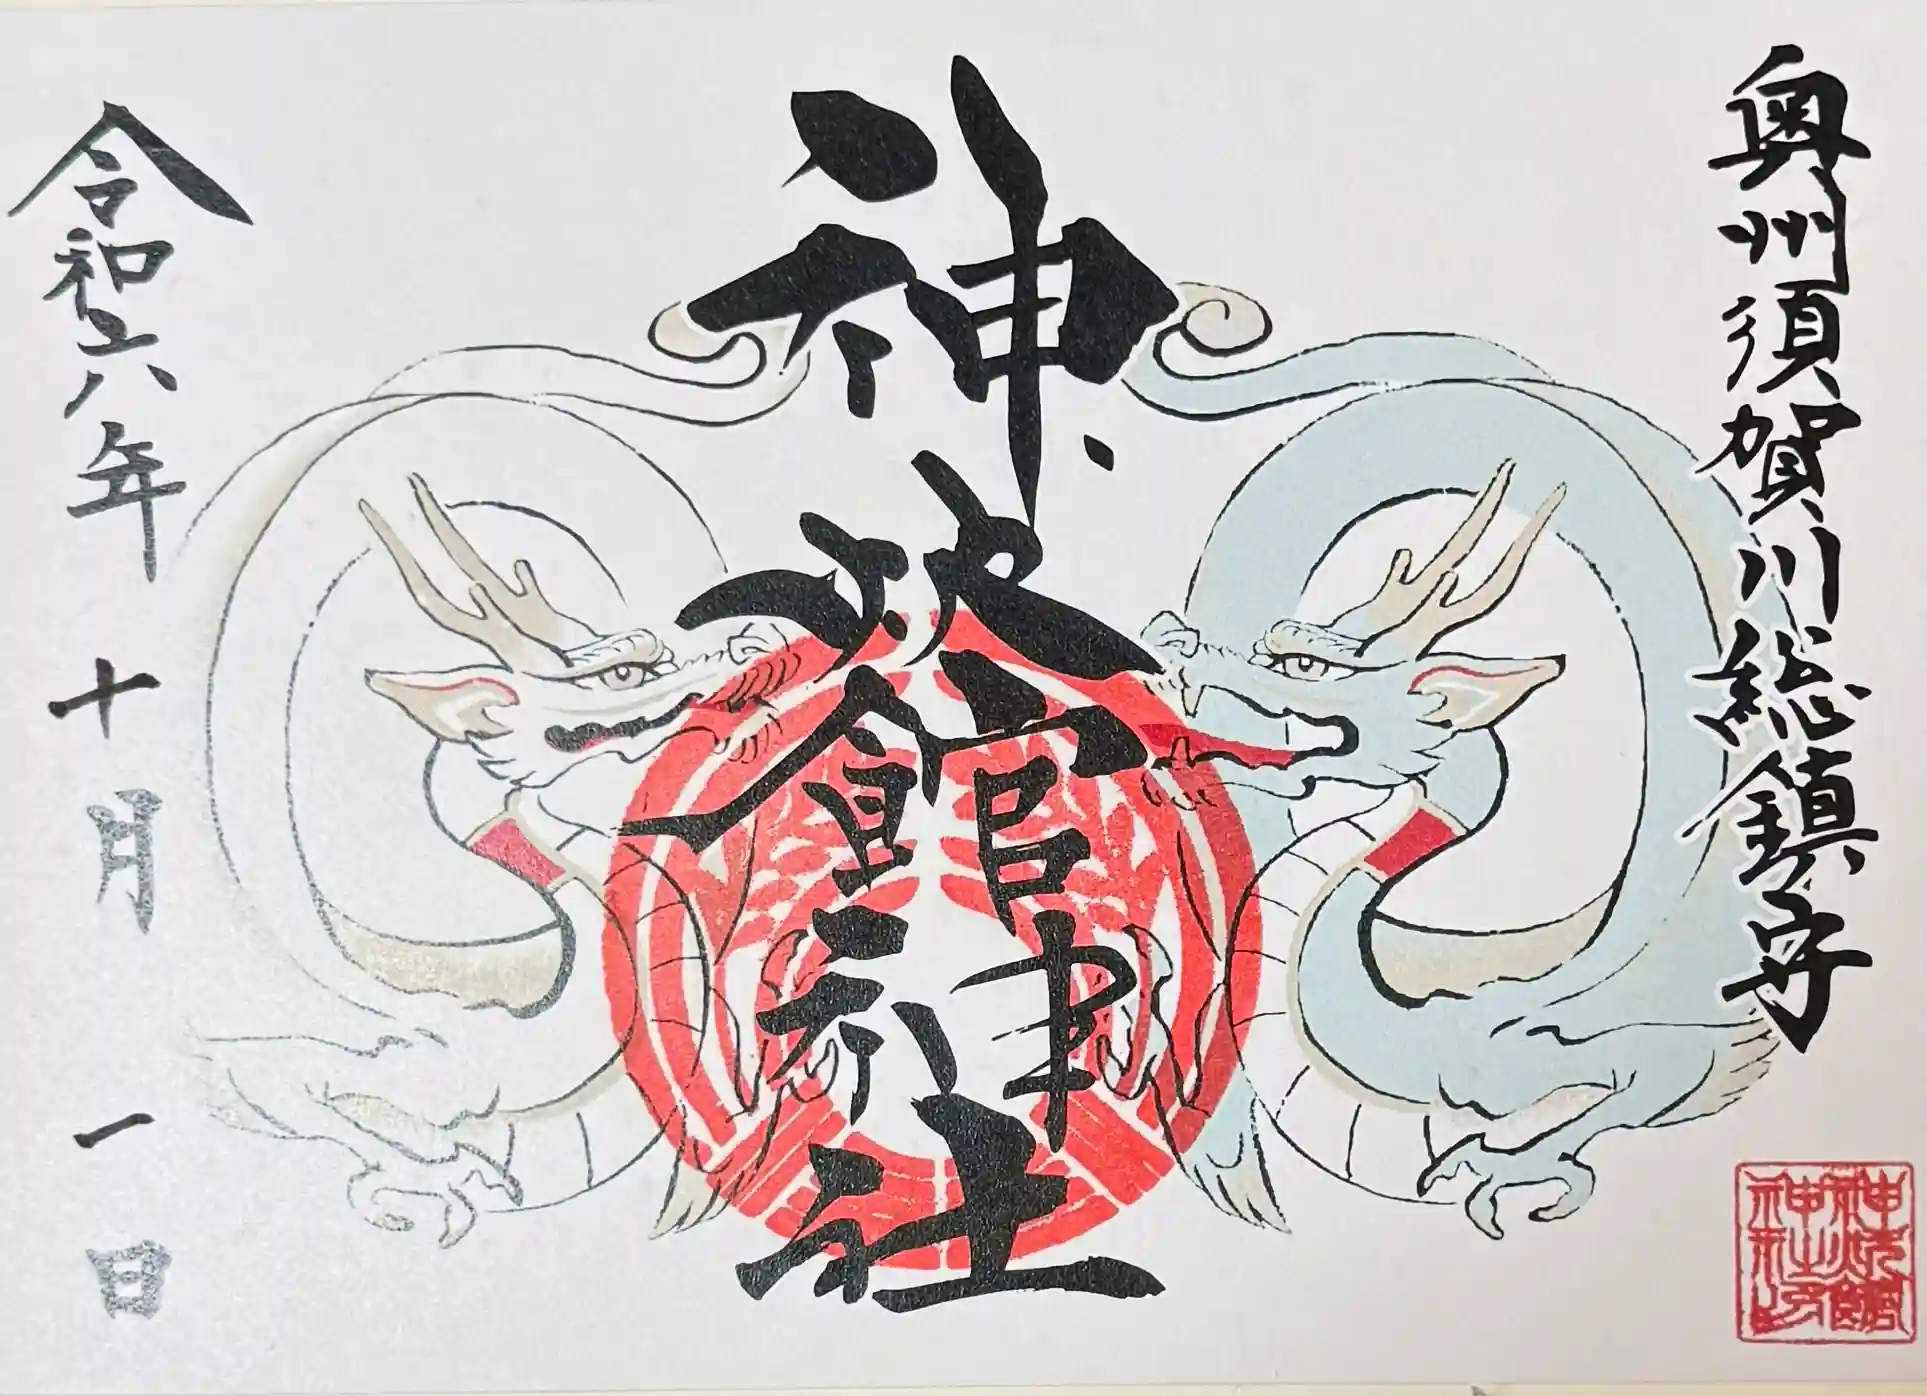 奥州須賀川総鎮守
神炊館神社
令和六年十月一日